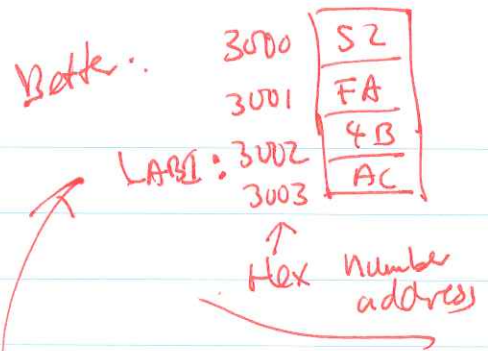 Better:
3000 52
3001 FA
LAB1: 3002 4B
3003 AC
Hex number
address